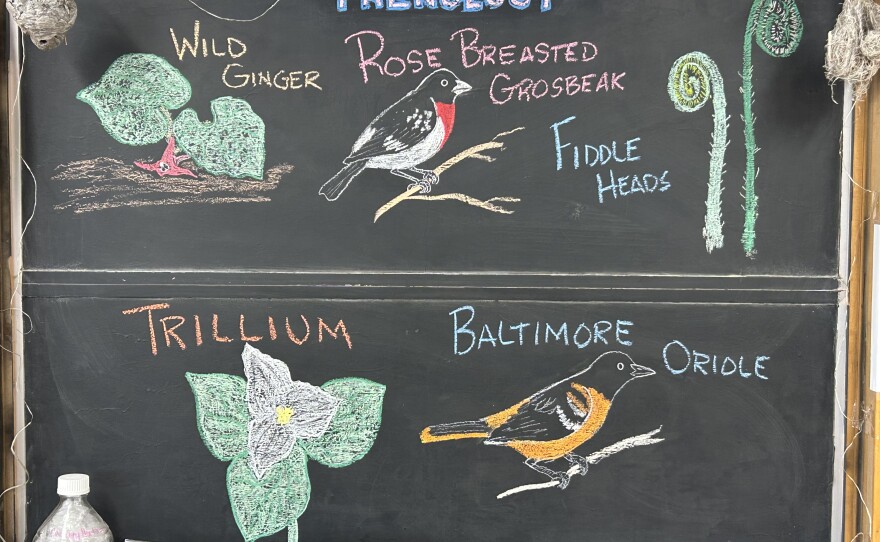 PHENOLOGY
WILD
GINGER
ROSE BREASTED
GROSBEAK
FIDDLE
HEADS
TRILLIUM
BALTIMORE
ORIOLE